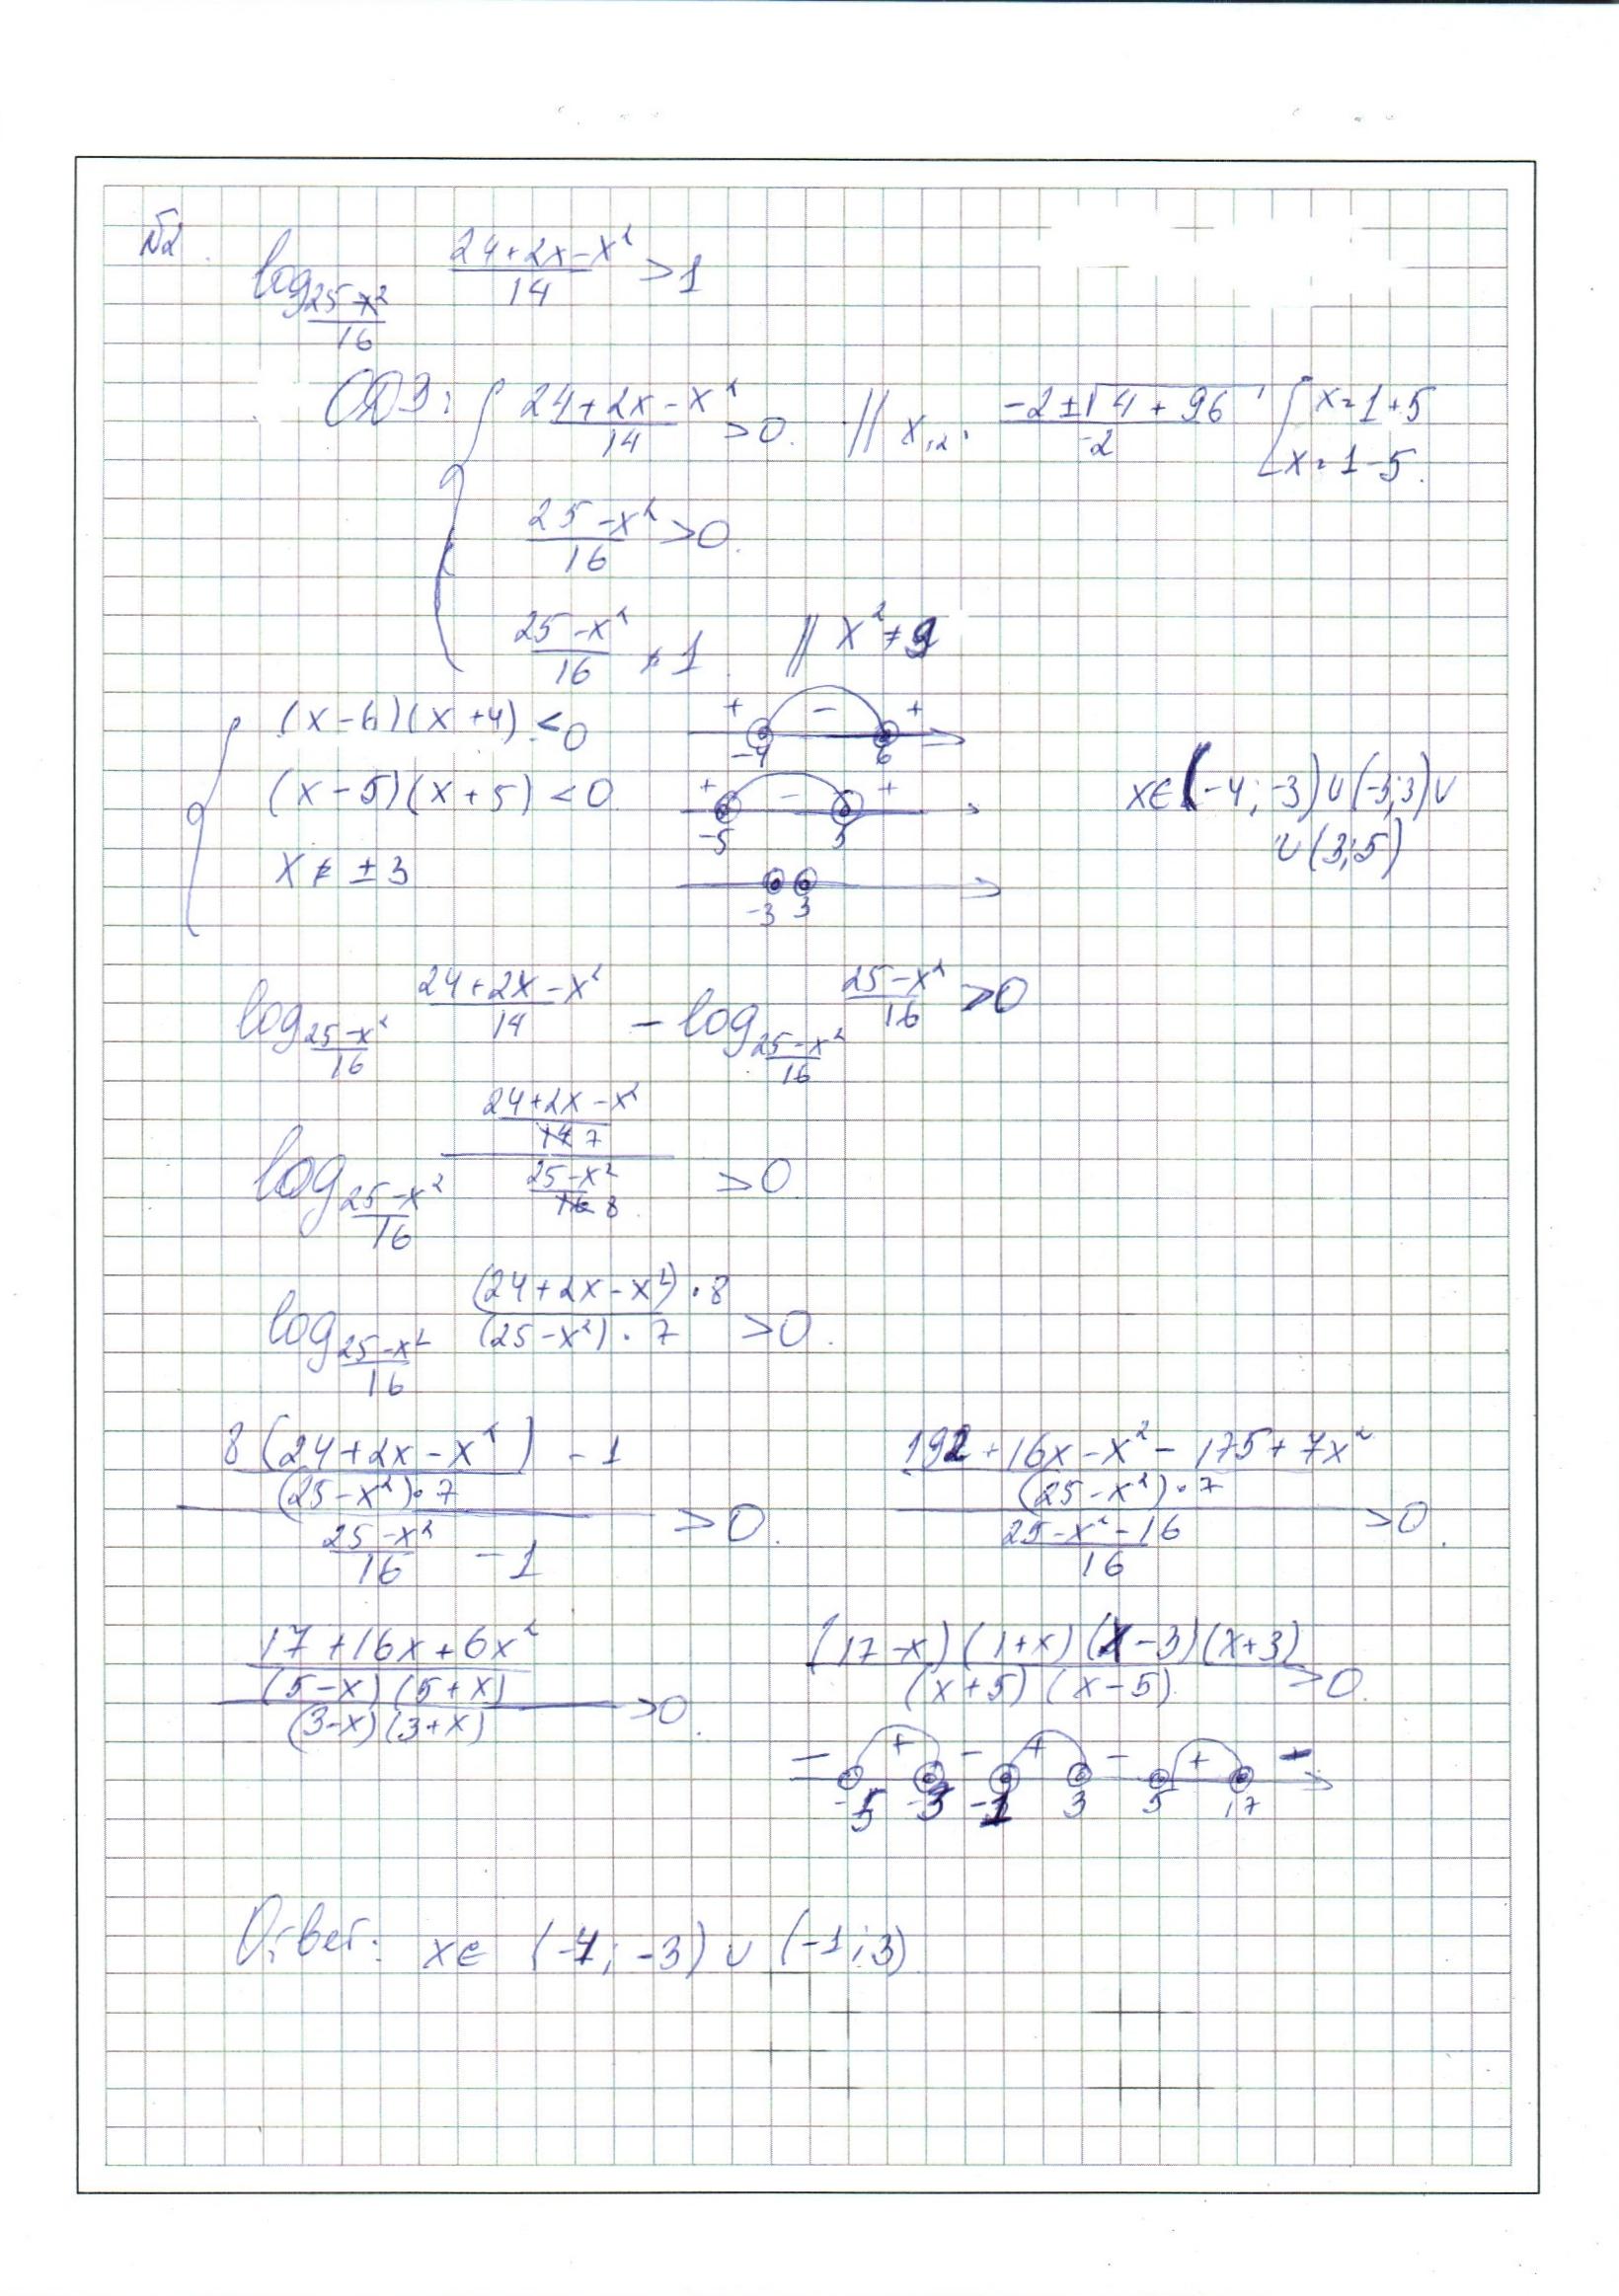 №2. log_{(25-x²)/16} (24+2x-x²)/14 > 1
ОДЗ: { (24+2x-x²)/14 > 0. || x₁,₂: (-2±√(4+96))/(-2) [ x=1+5
x=1-5.
(25-x²)/16 > 0.
(25-x²)/16 ≠ 1 || x² ≠ 9
{ (x-6)(x+4) < 0 + - + -4 6
(x-5)(x+5) < 0 + - + -5 5 x∈(-4; -3)∪(-3;3)∪
∪(3;5)
x ≠ ±3 -3 3
log_{(25-x²)/16} (24+2x-x²)/14 - log_{(25-x²)/16} (25-x²)/16 > 0
log_{(25-x²)/16} ((24+2x-x²)/(14 7))/((25-x²)/(16 8)) > 0
log_{(25-x²)/16} ((24+2x-x²)·8)/((25-x²)·7) > 0.
(8(24+2x-x²)/((25-x²)·7) - 1)/((25-x²)/16 - 1) > 0. ((192+16x-x²-175+7x²)/((25-x²)·7))/((25-x²-16)/16) > 0.
((17+16x+6x²)/((5-x)(5+x)))/((3-x)(3+x)) > 0. ((17-x)(1+x)(x-3)(x+3))/((x+5)(x-5)) > 0.
- + - + - + -
-5 -3 -1 3 5 17
Ответ: x∈ (-4; -3) ∪ (-1; 3)